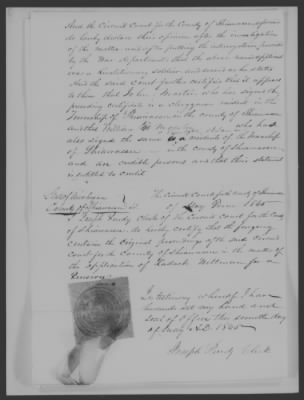 And the Circuit Court for the County of Shiawassee aforesaid
do hereby declare their opinion after the investigation
of the matter and after putting the interrogatories prescribed
by the War Department that the above named applicant
was a Revolutionary soldier and served as he states
And the said Court further certifies that it appears
to them that John Martin who has signed the
preceding certificate is a Clergyman resident in the
Township of Shiawassee in the County of Shiawassee
and that William who had
also signed the same is a resident of the township
of Shiawassee in the County of Shiawassee
and are credible persons and that their statement
is entitled to credit
State of Michigan
County of Shiawassee ss
The Circuit Court of the County of Shiawassee
of May Term 1845
I Joseph Purdy Clerk of the Circuit Court for the County
of Shiawassee do hereby certify that the foregoing
contains the original proceedings of the said Circuit
Court for the County of Shiawassee in the matter of
the application of for a
Pension
In testimony whereof I have
hereunto set my hand and
seal of Office this Day
of May A.D. 1845
Joseph Purdy Clerk